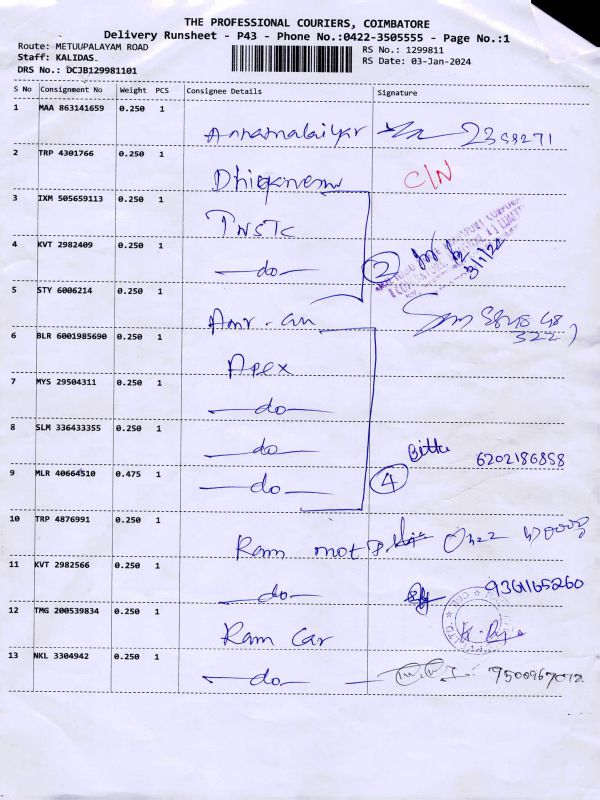 THE PROFESSIONAL COURIERS, COIMBATORE
Delivery Runsheet - P43 - Phone No.:0422-3505555 - Page No.:1
Route: METUUPALAYAM ROAD
RS No.: 1299811
Staff: KALIDAS.
RS Date: 03-Jan-2024
DRS No.: DCJB129981101
S No Consignment No Weight PCS Consignee Details Signature
1 MAA 863141659 0.250 1
Annamalaiyar
2 TRP 4301766 0.250 1
C/N
3 IXM 505659113 0.250 1
TNSTC
4 KVT 2982409 0.250 1
-do- 2 3/1/24
5 STY 6006214 0.250 1
6 BLR 6001985690 0.250 1
Apex
7 MYS 29504311 0.250 1
-do-
8 SLM 336433355 0.250 1
-do- 6202186858
9 MLR 40664510 0.475 1
-do- 4
10 TRP 4876991 0.250 1
Ram
11 KVT 2982566 0.250 1
-do- 9361165260
12 TMG 200539834 0.250 1
Ram Car
13 NKL 3304942 0.250 1
-do-